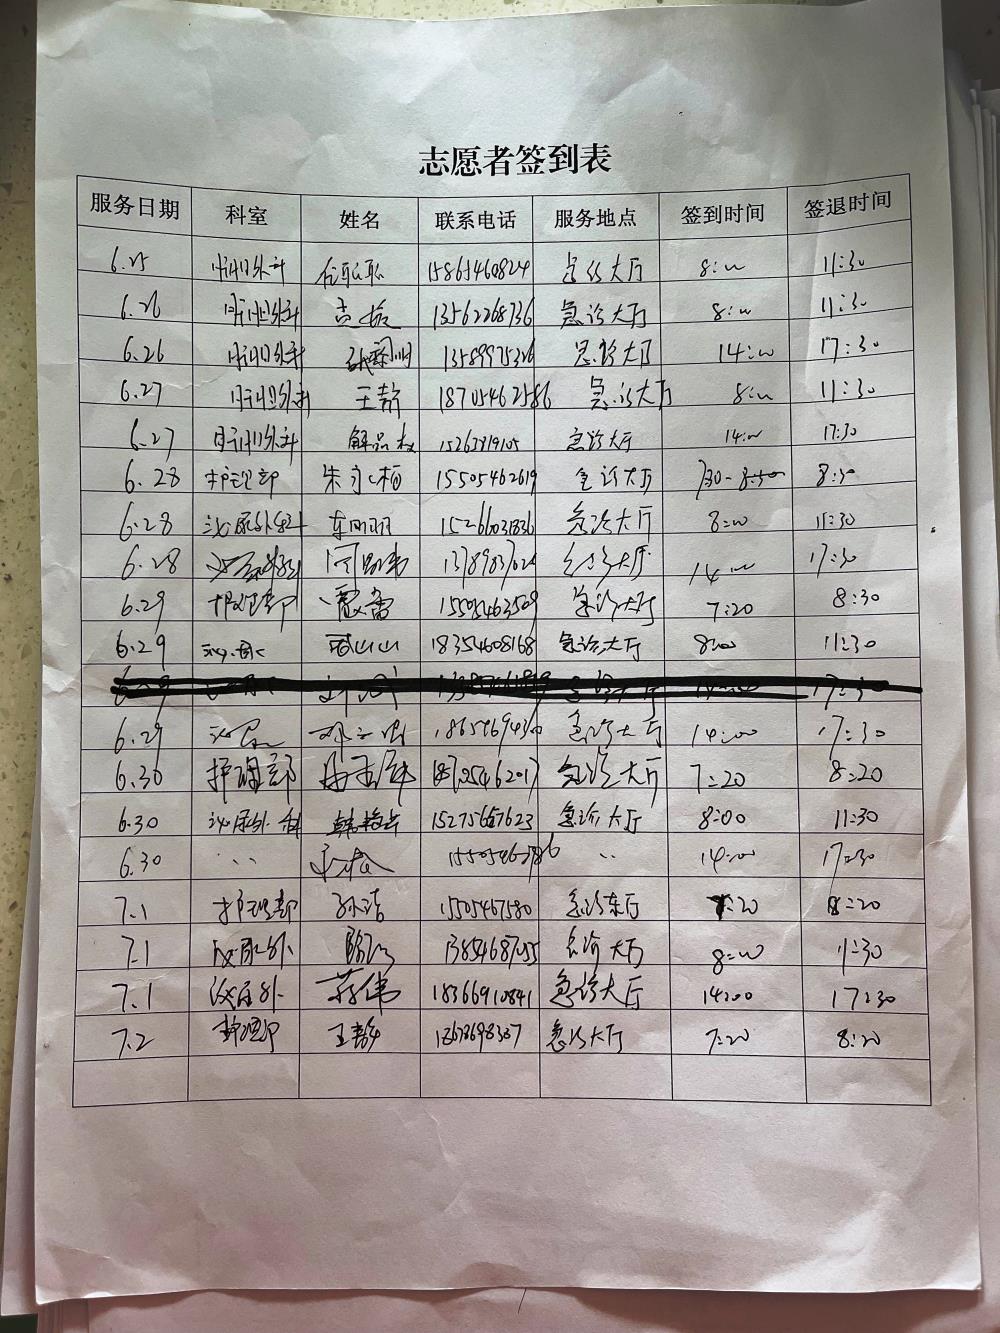 志愿者签到表
服务日期 科室 姓名 联系电话 服务地点 签到时间 签退时间
6.25 肝胆外科 大厅 8:00 11:30
6.26 肝胆外科 13562268736 急诊大厅 8:00 11:30
6.26 肝胆外科 13589975326 急诊大厅 14:00 17:30
6.27 肝胆外科 王静 18705462586 急诊大厅 8:00 11:30
6.27 肝胆外科 15263819105 急诊大厅 14:00 17:30
6.28 护理部 朱永梅 15505462619 急诊大厅 7:30- 8:30
6.28 泌尿外科 15266031836 急诊大厅 8:00 11:30
6.28 急诊大厅 14:00 17:30
6.29 护理部 15505463509 急诊大厅 7:20 8:30
6.29 山山 18354608168 急诊大厅 8:00 11:30
6.29 急诊大厅 14:00 17:30
6.30 护理部 18705462017 急诊大厅 7:20 8:20
6.30 泌尿外科 15275667623 急诊大厅 8:00 11:30
6.30 〃 〃 14:00 17:30
7.1 护理部 孙洁 15505467580 7:20 8:20
7.1 泌尿外 13854687055 急诊大厅 8:00 11:30
7.1 泌尿外 伟 18366910841 急诊大厅 14:00 17:30
7.2 护理部 王静 急诊大厅 7:20 8:20